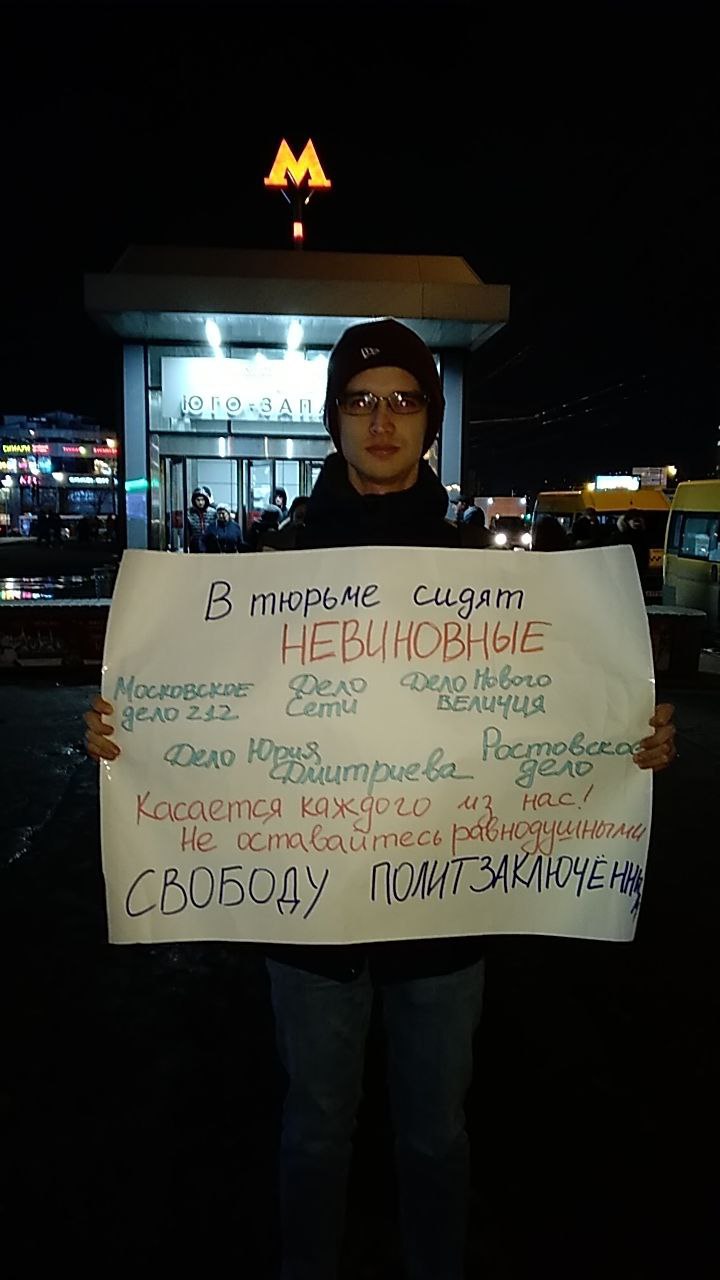 М
ЮГО-ЗАПА
В тюрьме сидят
НЕВИНОВНЫЕ
Московское дело 212
Дело Сети
Дело Нового Величия
Дело Юрия Дмитриева
Ростовское дело
Касается каждого из нас!
Не оставайтесь равнодушными
СВОБОДУ ПОЛИТЗАКЛЮЧЁННЫМ